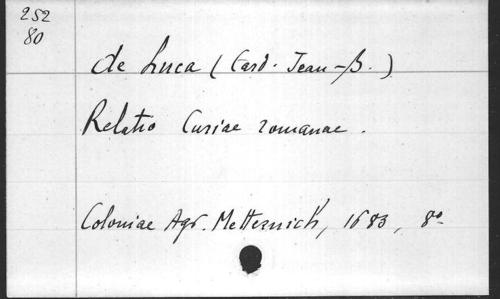 252
80
de Luca (Card. Jean-B.)
Relatio Curiae romanae.
Coloniae Agr. Metternich, 1683, 8º